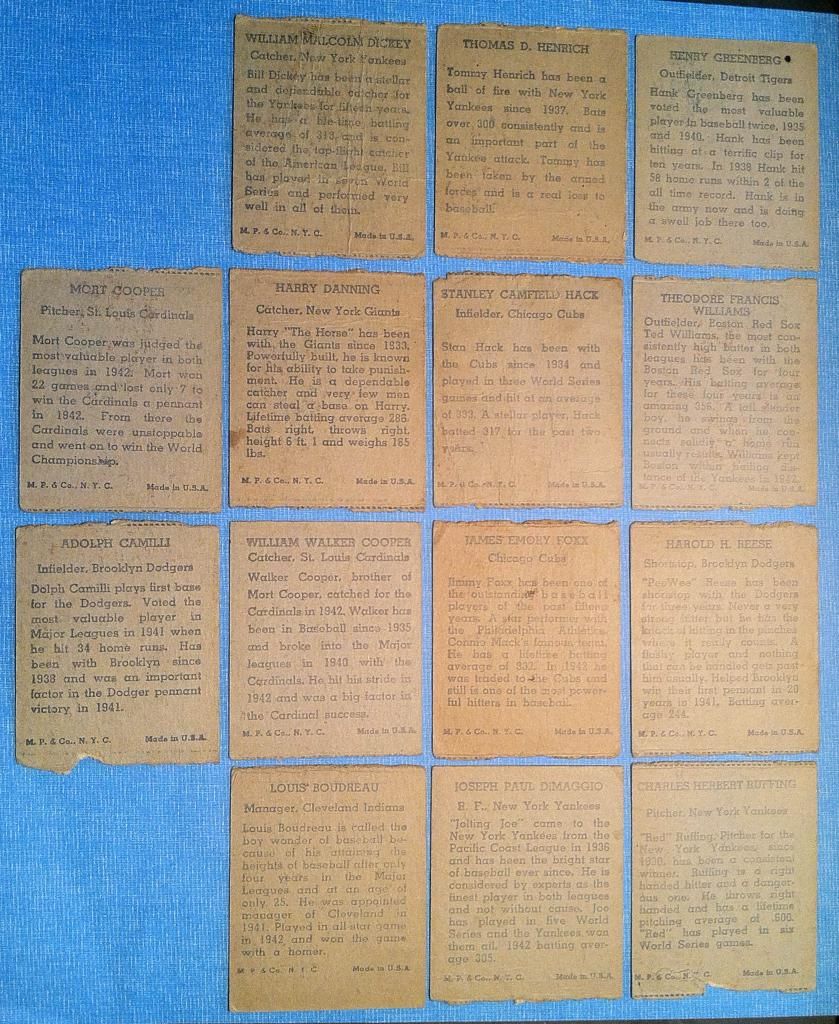 WILLIAM MALCOLM DICKEY
Catcher, New York Yankees
Bill Dickey has been a stellar
and dependable catcher for
the Yankees for fifteen years.
He has a life-time batting
average of 313 and is con-
sidered the top-flight catcher
of the American League. Bill
has played in seven World
Series and performed very
well in all of them.
M. P. & Co., N. Y. C. Made in U.S.A.
THOMAS D. HENRICH
Tommy Henrich has been a
ball of fire with New York
Yankees since 1937. Bats
over 300 consistently and is
an important part of the
Yankee attack. Tommy has
been taken by the armed
forces and is a real loss to
baseball.
M. P. & Co., N. Y. C. Made in U.S.A.
HENRY GREENBERG
Outfielder, Detroit Tigers
Hank Greenberg has been
voted the most valuable
player in baseball twice, 1935
and 1940. Hank has been
hitting at a terrific clip for
ten years. In 1938 Hank hit
58 home runs within 2 of the
all time record. Hank is in
the army now and is doing
a swell job there too.
M. P. & Co., N. Y. C. Made in U.S.A.
MORT COOPER
Pitcher, St. Louis Cardinals
Mort Cooper was judged the
most valuable player in both
leagues in 1942. Mort won
22 games and lost only 7 to
win the Cardinals a pennant
in 1942. From there the
Cardinals were unstoppable
and went on to win the World
Championship.
M. P. & Co., N. Y. C. Made in U.S.A.
HARRY DANNING
Catcher, New York Giants
Harry "The Horse" has been
with the Giants since 1933.
Powerfully built, he is known
for his ability to take punish-
ment. He is a dependable
catcher and very few men
can steal a base on Harry.
Lifetime batting average 286.
Bats right, throws right,
height 6 ft. 1 and weighs 185
lbs.
M. P. & Co., N. Y. C. Made in U.S.A.
STANLEY CAMFIELD HACK
Infielder, Chicago Cubs
Stan Hack has been with
the Cubs since 1934 and
played in three World Series
games and hit at an average
of 333. A stellar player, Hack
batted 317 for the past two
years.
M. P. & Co., N. Y. C. Made in U.S.A.
THEODORE FRANCIS
WILLIAMS
Outfielder, Boston Red Sox
Ted Williams, the most con-
sistently high batter in both
leagues has been with the
Boston Red Sox for four
years. His batting average
for these four years is an
amazing 356. A tall slender
boy, he swings from the
ground and when he con-
nects solidly a home run
usually results. Williams kept
Boston within hailing dis-
tance of the Yankees in 1942.
M. P. & Co., N. Y. C. Made in U.S.A.
ADOLPH CAMILLI
Infielder, Brooklyn Dodgers
Dolph Camilli plays first base
for the Dodgers. Voted the
most valuable player in
Major Leagues in 1941 when
he hit 34 home runs. Has
been with Brooklyn since
1938 and was an important
factor in the Dodger pennant
victory in 1941.
M. P. & Co., N. Y. C. Made in U.S.A.
WILLIAM WALKER COOPER
Catcher, St. Louis Cardinals
Walker Cooper, brother of
Mort Cooper, catched for the
Cardinals in 1942. Walker has
been in Baseball since 1935
and broke into the Major
leagues in 1940 with the
Cardinals. He hit his stride in
1942 and was a big factor in
the Cardinal success.
M. P. & Co., N. Y. C. Made in U.S.A.
JAMES EMORY FOXX
Chicago Cubs
Jimmy Foxx has been one of
the outstanding baseball
players of the past fifteen
years. A star performer with
the Philadelphia Athletics
Connie Mack's famous team.
He has a lifetime batting
average of 332. In 1942 he
was traded to the Cubs and
still is one of the most power-
ful hitters in baseball.
M. P. & Co., N. Y. C. Made in U.S.A.
HAROLD H. REESE
Shortstop, Brooklyn Dodgers
"PeeWee" Reese has been
shortstop with the Dodgers
for three years. Never a very
strong hitter but he has the
knack of hitting in the pinches
where it really counts. A
flashy player and nothing
that can be handled gets past
him usually. Helped Brooklyn
win their first pennant in 20
years in 1941. Batting aver-
age 244.
M. P. & Co., N. Y. C. Made in U.S.A.
LOUIS BOUDREAU
Manager, Cleveland Indians
Louis Boudreau is called the
boy wonder of baseball be-
cause of his attaining the
heights of baseball after only
four years in the Major
Leagues and at an age of
only 25. He was appointed
manager of Cleveland in
1941. Played in all-star game
in 1942 and won the game
with a homer.
M. P. & Co., N. Y. C. Made in U.S.A.
JOSEPH PAUL DiMAGGIO
R. F., New York Yankees
"Jolting Joe" came to the
New York Yankees from the
Pacific Coast League in 1936
and has been the bright star
of baseball ever since. He is
considered by experts as the
finest player in both leagues
and not without cause. Joe
has played in five World
Series and the Yankees won
them all. 1942 batting aver-
age 305.
M. P. & Co., N. Y. C. Made in U.S.A.
CHARLES HERBERT RUFFING
Pitcher, New York Yankees
"Red" Ruffing, Pitcher for the
New York Yankees, since
1930, has been a consistent
winner. Ruffing is a right
handed hitter and a danger-
ous one. He throws right
handed and has a lifetime
pitching average of .606.
"Red" has played in six
World Series games.
M. P. & Co., N. Y. C. Made in U.S.A.